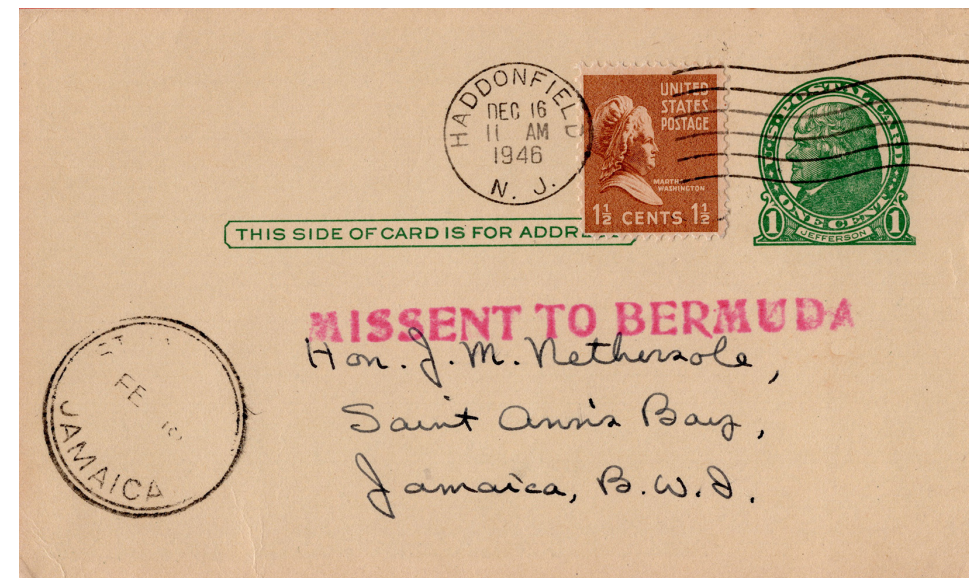 HADDONFIELD
DEC 16
11 AM
1946
N. J.
UNITED
STATES
POSTAGE
MARTHA
WASHINGTON
1½ CENTS 1½
U.S. POSTAL CARD
ONE CENT
1 JEFFERSON 1
THIS SIDE OF CARD IS FOR ADDRE
MISSENT TO BERMUDA
Hon. J. M. Nethersole,
Saint Ann's Bay,
Jamaica, B.W.I.
FE
JAMAICA